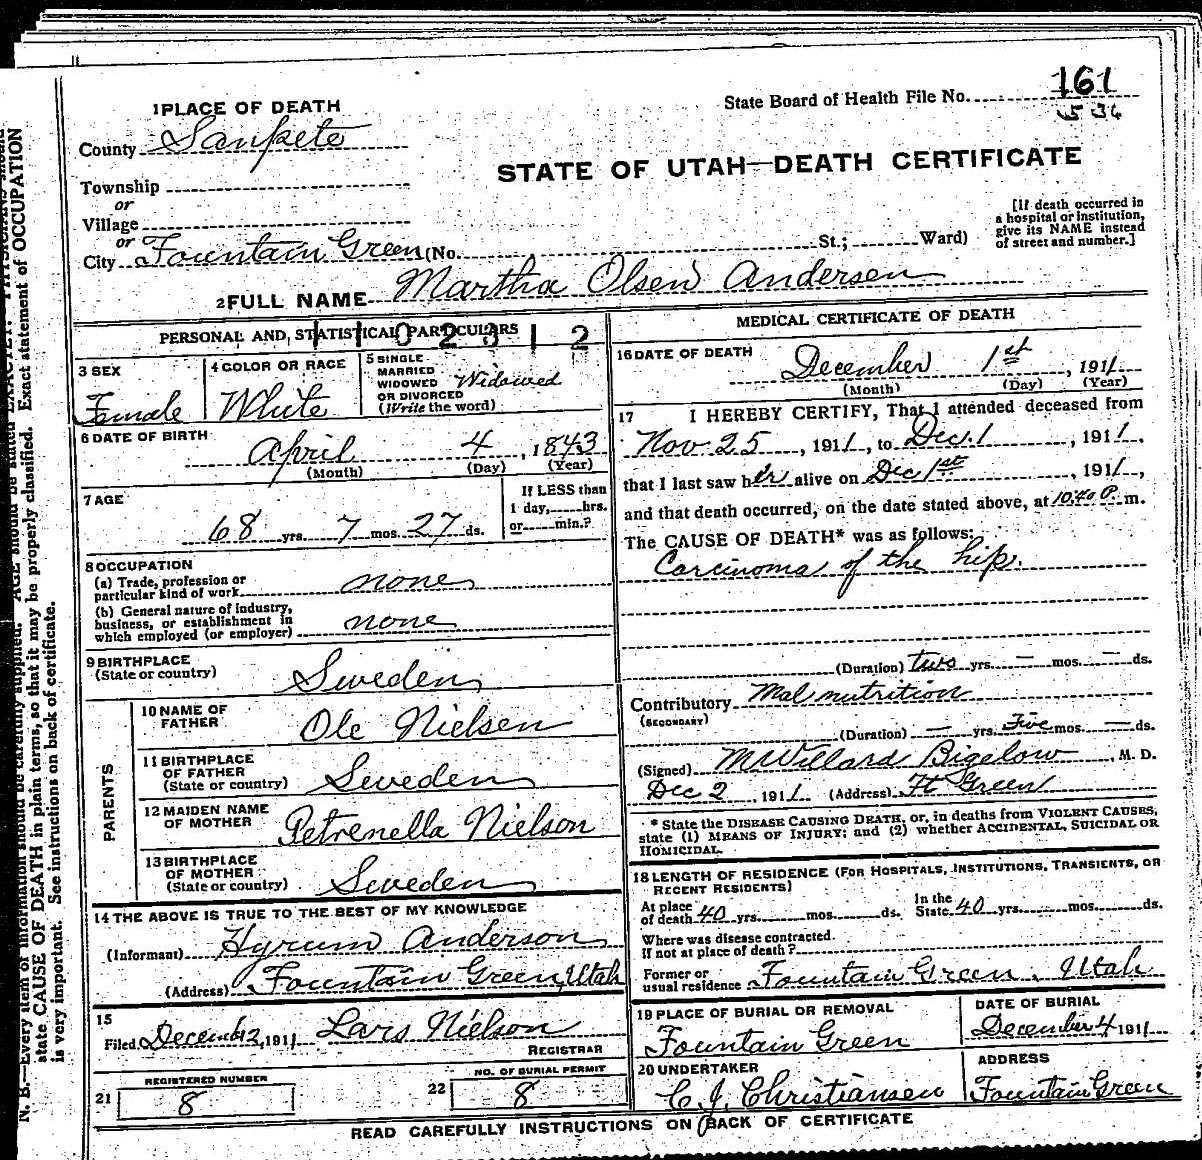 State Board of Health File No. 161
536
1 PLACE OF DEATH
County Sanpete
STATE OF UTAH—DEATH CERTIFICATE
Township
or
Village
or
City Fountain Green (No. St.; Ward)
[If death occurred in
a hospital or institution,
give its NAME instead
of street and number.]
2 FULL NAME Martha Olsen Andersen
PERSONAL AND STATISTICAL PARTICULARS
1102312
3 SEX
Female
4 COLOR OR RACE
White
5 SINGLE
MARRIED
WIDOWED
OR DIVORCED
(Write the word)
Widowed
6 DATE OF BIRTH
April 4, 1843
(Month) (Day) (Year)
7 AGE
68 yrs. 7 mos. 27 ds.
If LESS than
1 day, hrs.
or min.?
8 OCCUPATION
(a) Trade, profession or
particular kind of work none
(b) General nature of industry,
business, or establishment in
which employed (or employer) none
9 BIRTHPLACE
(State or country) Sweden
PARENTS
10 NAME OF
FATHER Ole Nielsen
11 BIRTHPLACE
OF FATHER
(State or country) Sweden
12 MAIDEN NAME
OF MOTHER Petrenella Nielson
13 BIRTHPLACE
OF MOTHER
(State or country) Sweden
14 THE ABOVE IS TRUE TO THE BEST OF MY KNOWLEDGE
(Informant) Hyrum Anderson
(Address) Fountain Green, Utah
15
Filed December 2, 1911 Lars Nielson
REGISTRAR
21 REGISTERED NUMBER
8
22 NO. OF BURIAL PERMIT
8
MEDICAL CERTIFICATE OF DEATH
16 DATE OF DEATH
December 1st, 1911
(Month) (Day) (Year)
17 I HEREBY CERTIFY, That I attended deceased from
Nov. 25, 1911, to Dec. 1, 1911,
that I last saw her alive on Dec 1st, 1911,
and that death occurred, on the date stated above, at 10:40 P. m.
The CAUSE OF DEATH* was as follows:
Carcinoma of the hip.
(Duration) two yrs. — mos. — ds.
Contributory Mal nutrition
(SECONDARY)
(Duration) — yrs. Five mos. — ds.
(Signed) M Willard Bigelow, M. D.
Dec 2, 1911 (Address) Ft Green
* State the DISEASE CAUSING DEATH, or, in deaths from VIOLENT CAUSES,
state (1) MEANS OF INJURY; and (2) whether ACCIDENTAL, SUICIDAL OR
HOMICIDAL.
18 LENGTH OF RESIDENCE (FOR HOSPITALS, INSTITUTIONS, TRANSIENTS, OR
RECENT RESIDENTS)
At place
of death 40 yrs. mos. ds.
In the
State 40 yrs. mos. ds.
Where was disease contracted
if not at place of death?
Former or
usual residence Fountain Green, Utah
19 PLACE OF BURIAL OR REMOVAL
Fountain Green
DATE OF BURIAL
December 4 1911
20 UNDERTAKER
C. J. Christiansen
ADDRESS
Fountain Green
READ CAREFULLY INSTRUCTIONS ON BACK OF CERTIFICATE
N. B.—Every item of information should be carefully supplied. AGE should be stated EXACTLY. PHYSICIANS should
state CAUSE OF DEATH in plain terms, so that it may be properly classified. Exact statement of OCCUPATION
is very important. See instructions on back of certificate.